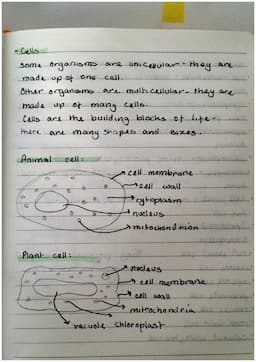 Cells
some organisms are unicellular - they are
made up of one cell.
Other organisms are multicellular - they are
made up of many cells.
Cells are the building blocks of life -
there are many shapes and sizes.
Animal cell:
cell membrane
cell wall
cytoplasm
nucleus
mitochondrion
Plant cell:
nucleus
cell membrane
cell wall
mitochondria
vacuole chloroplast